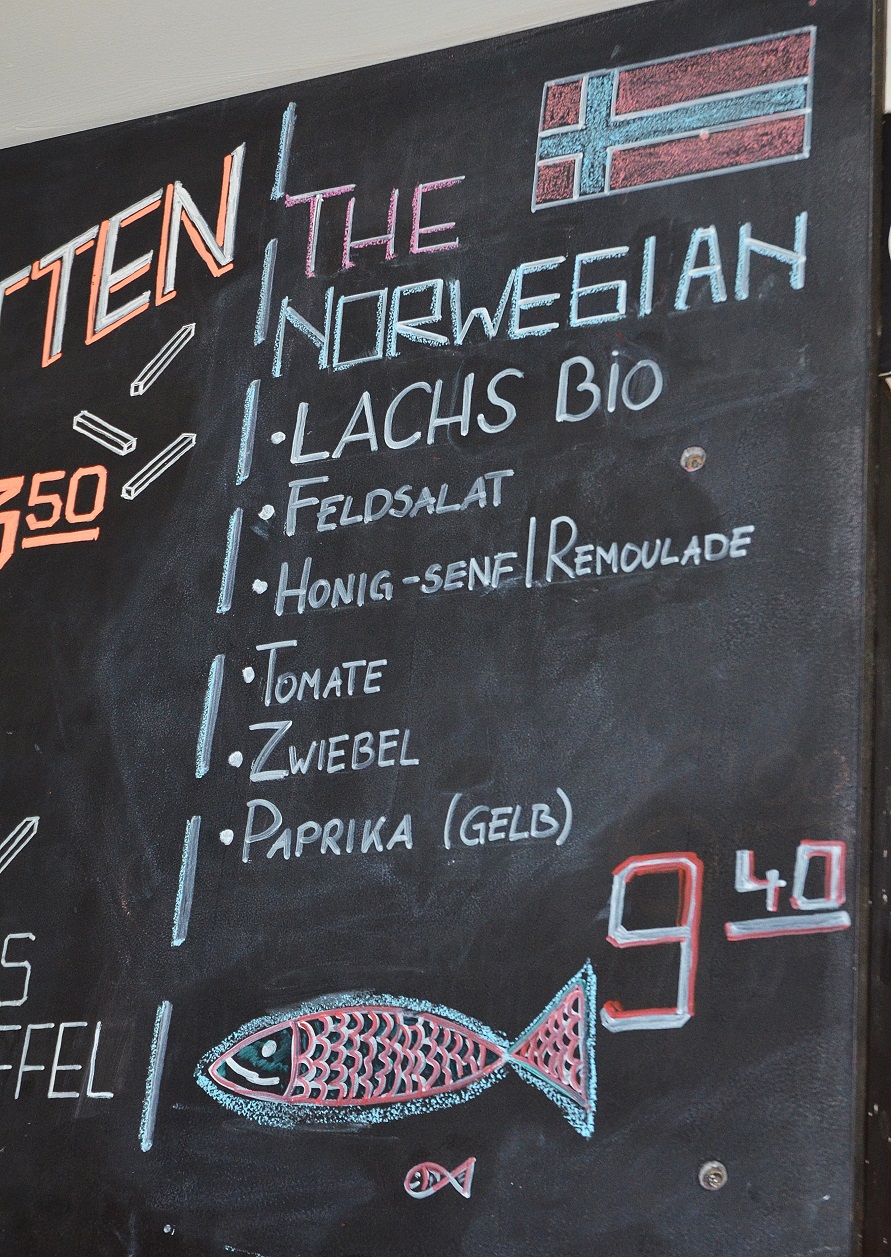 TTEN
350
S
FFEL
THE
NORWEGIAN
• LACHS BiO
• FELDSALAT
• HONIG-SENF/REMOULADE
• TOMATE
• ZWIEBEL
• PAPRIKA (GELB)
9 40